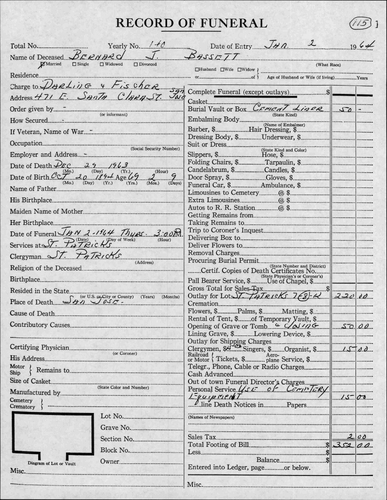 RECORD OF FUNERAL
115
Total No. Yearly No. 1-40 Date of Entry JAN 2 1964
Name of Deceased BERNARD J BASSETT
Married Single Widowed Divorced Husband Wife Widow (What Race)
Residence or Age of Husband or Wife (if living) Years
Charge to DARLING & FISCHER SAN JOSE
Address 471 E. SANTA CLARA ST.
Order given by -
How Secured -
(or Informant)
If Veteran, Name of War -
Occupation
(Social Security Number)
Employer and Address -
Date of Death DEC 29 1963
(Mo.) (Day) (Year) (Hour)
Date of Birth OCT 20 1894 Age 69 2 9
(Mo.) (Day) (Year) (Yrs.) (Mos.) (Days)
Name of Father
His Birthplace
Maiden Name of Mother
Her Birthplace
Date of Funeral JAN 2-1964 THURS. 3:00 PM
(Date) (Day of Week) (Hour)
Services at ST. PATRICKS
Clergyman ST. PATRICKS
(Address)
Religion of the Deceased
Birthplace
Resided in the State
(or U.S. or City or County) (Years) (Months)
Place of Death SAN JOSE
Cause of Death
Contributory Causes
Certifying Physician
(or Coroner)
His Address
Motor Ship Remains to
Size of Casket
(State Color and Number)
Manufactured by
Cemetery
Crematory
Lot No.
Grave No.
Section No.
Block No.
Owner
Diagram of Lot or Vault
Misc.
Complete Funeral (except outlays) $
Casket
Burial Vault or Box CEMENT LINER 50 -
(State Kind)
Embalming Body
(Name of Embalmer)
Barber, $ Hair Dressing, $
Dressing Body, $ Underwear, $
Suit or Dress
(State Kind and Color)
Slippers, $ Hose, $
Folding Chairs, $ Tarpaulin, $
Candelabrum, $ Candles, $
Door Spray, $ Gloves, $
Funeral Car, $ Ambulance, $
Limousines to Cemetery @ $
Extra Limousines @ $
Autos to R. R. Station @ $
Getting Remains from
Taking Remains to
Trip to Coroner's Inquest
Delivering Box to
Deliver Flowers to
Removal Charges
Procuring Burial Permit
(State Number and District)
Certif. Copies of Death Certificates No.
(State Physician's or Coroner's)
Pall Bearer Service, $ Use of Chapel, $
Gross Total for Sales Tax $
Outlay for Lot ST. PATRICKS 220 00
Cremation
Flowers, $ Palms, $ Matting, $
Rental of Tent, $ of Temporary Vault, $
Opening of Grave or Tomb & CLOSING 50 00
Lining Grave, $ Lowering Device, $
Outlay for Shipping Charges
Clergymen, $ Singers, $ Organist, $ 15 00
Railroad or Motor Tickets, $ Aero-plane Service, $
Telegr., Phone, Cable or Radio Charges
Cash Advanced
Out of town Funeral Director's Charges
Personal Service USE OF CEMETERY
EQUIPMENT 15 00
line Death Notices in Papers
(Names of Newspapers)
Sales Tax 2 00
Total Footing of Bill $ 352 00
Less
Balance $
Entered into Ledger, page or below.
Misc.